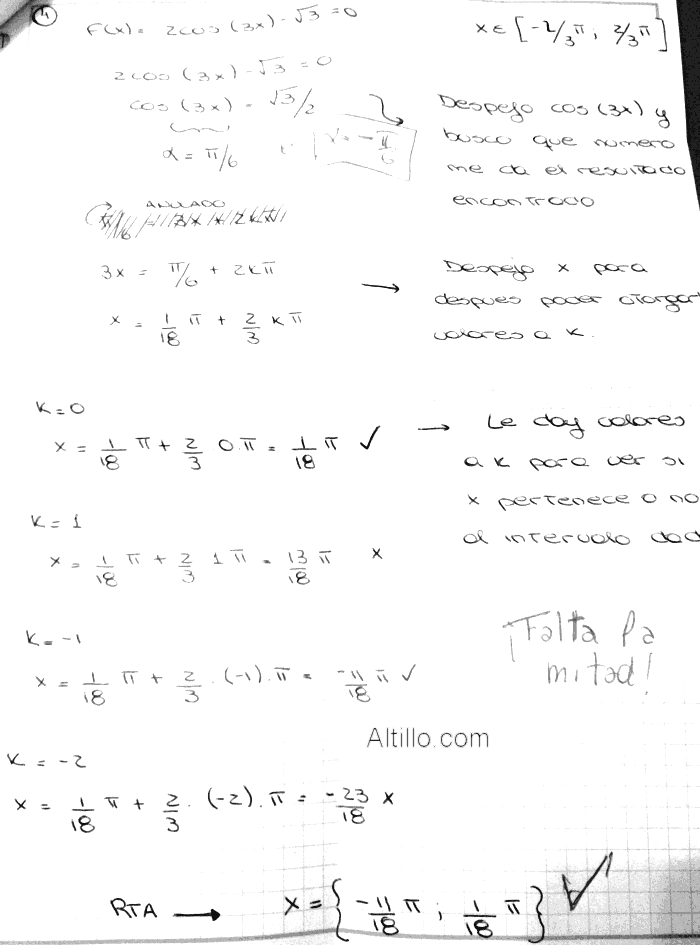 ④ F(x) = 2cos (3x) - √3 = 0
x ∈ [-2/3 π ; 2/3 π]
2cos (3x) - √3 = 0
cos (3x) = √3/2
α = π/6
= -π/6
Despejo cos (3x) y
busco que numero
me da el resultado
encontrado
ANULADO
3x = π/6 + 2kπ
x = 1/18 π + 2/3 k π
Despejo x para
despues poder otorgar
valores a k.
k = 0
x = 1/18 π + 2/3 0.π = 1/18 π ✓
Le doy valores
a k para ver si
x pertenece o no
al intervalo dad
k = 1
x = 1/18 π + 2/3 1 π = 13/18 π x
k = -1
x = 1/18 π + 2/3 . (-1) . π = -11/18 π ✓
¡Falta la
mitad!
Altillo.com
k = -2
x = 1/18 π + 2/3 . (-2) . π = -23/18 x
RTA → x = { -11/18 π ; 1/18 π } ✓